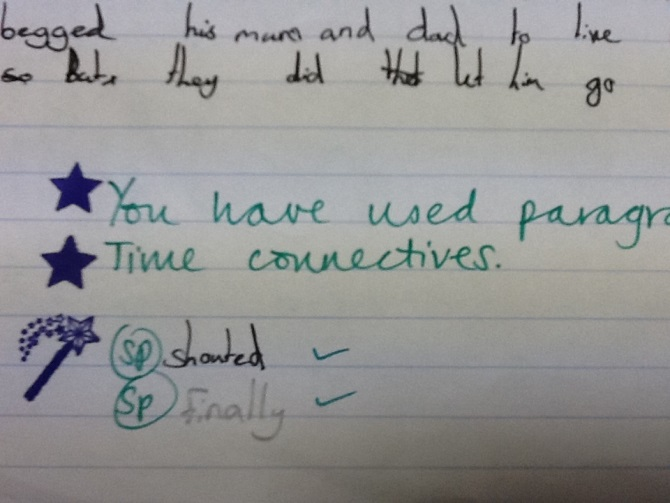 begged his mum and dad to live
so they did let him go
You have used paragra
Time connectives.
Sp shouted
Sp finally